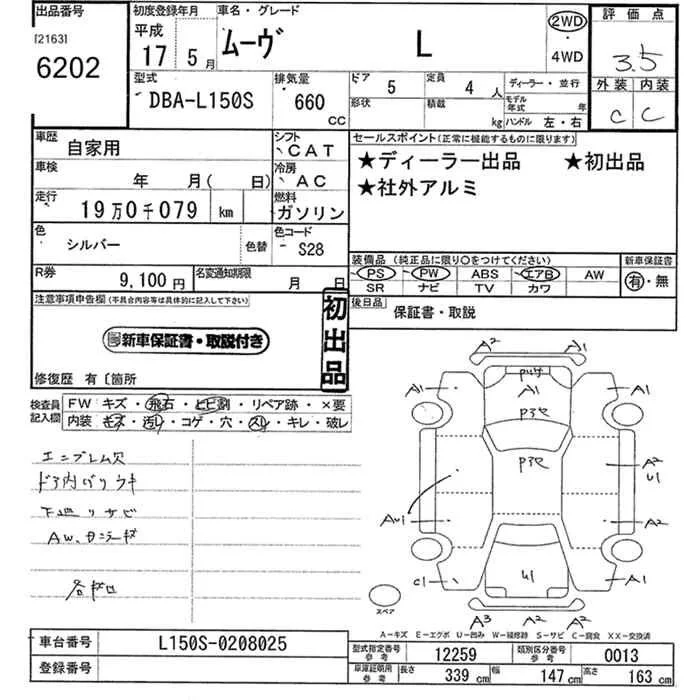 出品番号 初度登録年月 車名・グレード 評価点
[2163] 平成 2WD
6202 17 5月 ムーヴ L 4WD 3.5
型式 排気量 ドア 5 定員 4人 ディーラー・並行 外装 内装
DBA-L150S 660 CC 形状 積載 kg モデル年式 年 C C
ハンドル 左・右
車歴 自家用 シフト CAT セールスポイント(正常に機能するものに限ります)
車検 年 月( 日) 冷房 AC ★ディーラー出品 ★初出品
走行 19万0千079 km 燃料 ガソリン ★社外アルミ
色 シルバー 色替 色コード S28
装備品(純正品に限り○をつけてください) 新車保証書
R券 9,100円 名変通知期限 月 日 PS PW ABS エアB AW 有・無
SR ナビ TV カワ
注意事項申告欄(不具合内容等は具体的に記入して下さい) 初出品 後日品 保証書・取説
新車保証書・取説付き
修復歴 有〔箇所
検査員記入欄 FW キズ・飛石・ヒビ割・リペア跡・×要
内装 キズ・汚レ・コゲ・穴・スレ・キレ・破レ
エンブレム欠
下廻リサビ
A2 A1
A1 A1 A1
P3セ
P3セ
A2
U1
A2
C1 U1 A1
スペア
A3 A2 A2
A-キズ E-エクボ U-凹み W-補修跡 S-サビ C-腐食 XX-交換済
車台番号 L150S-0208025 型式指定番号 参考 12259 類別区分番号 参考 0013
登録番号 車庫証明用 参考 長さ 339 cm 幅 147 cm 高さ 163 cm